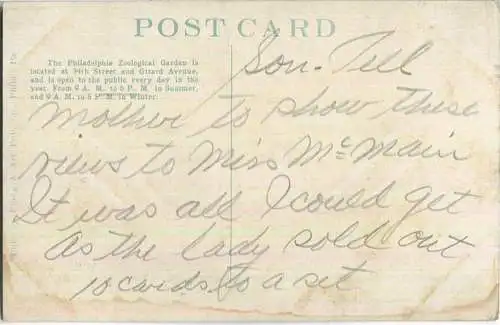 POST CARD
The Philadelphia Zoological Garden is
located at 34th Street and Girard Avenue,
and is open to the public every day in the
year. From 9 A. M. to 6 P. M. in Summer,
and 9 A. M. to 5 P. M. in Winter.
Son - Tell
Mother to show these
views to Miss McMain
It was all I could get
as the lady sold out
10 cards to a set